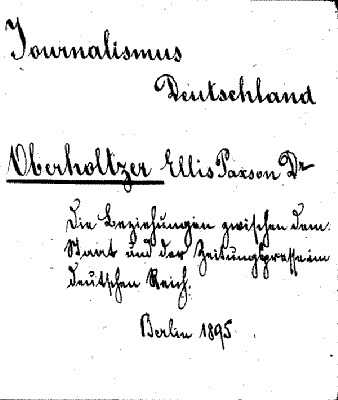 Journalismus
Deutschland
Oberholtzer Ellis Paxson Dr
Die Beziehungen zwischen dem
Staat und der Zeitungspresse im
deutschen Reich.
Berlin 1895